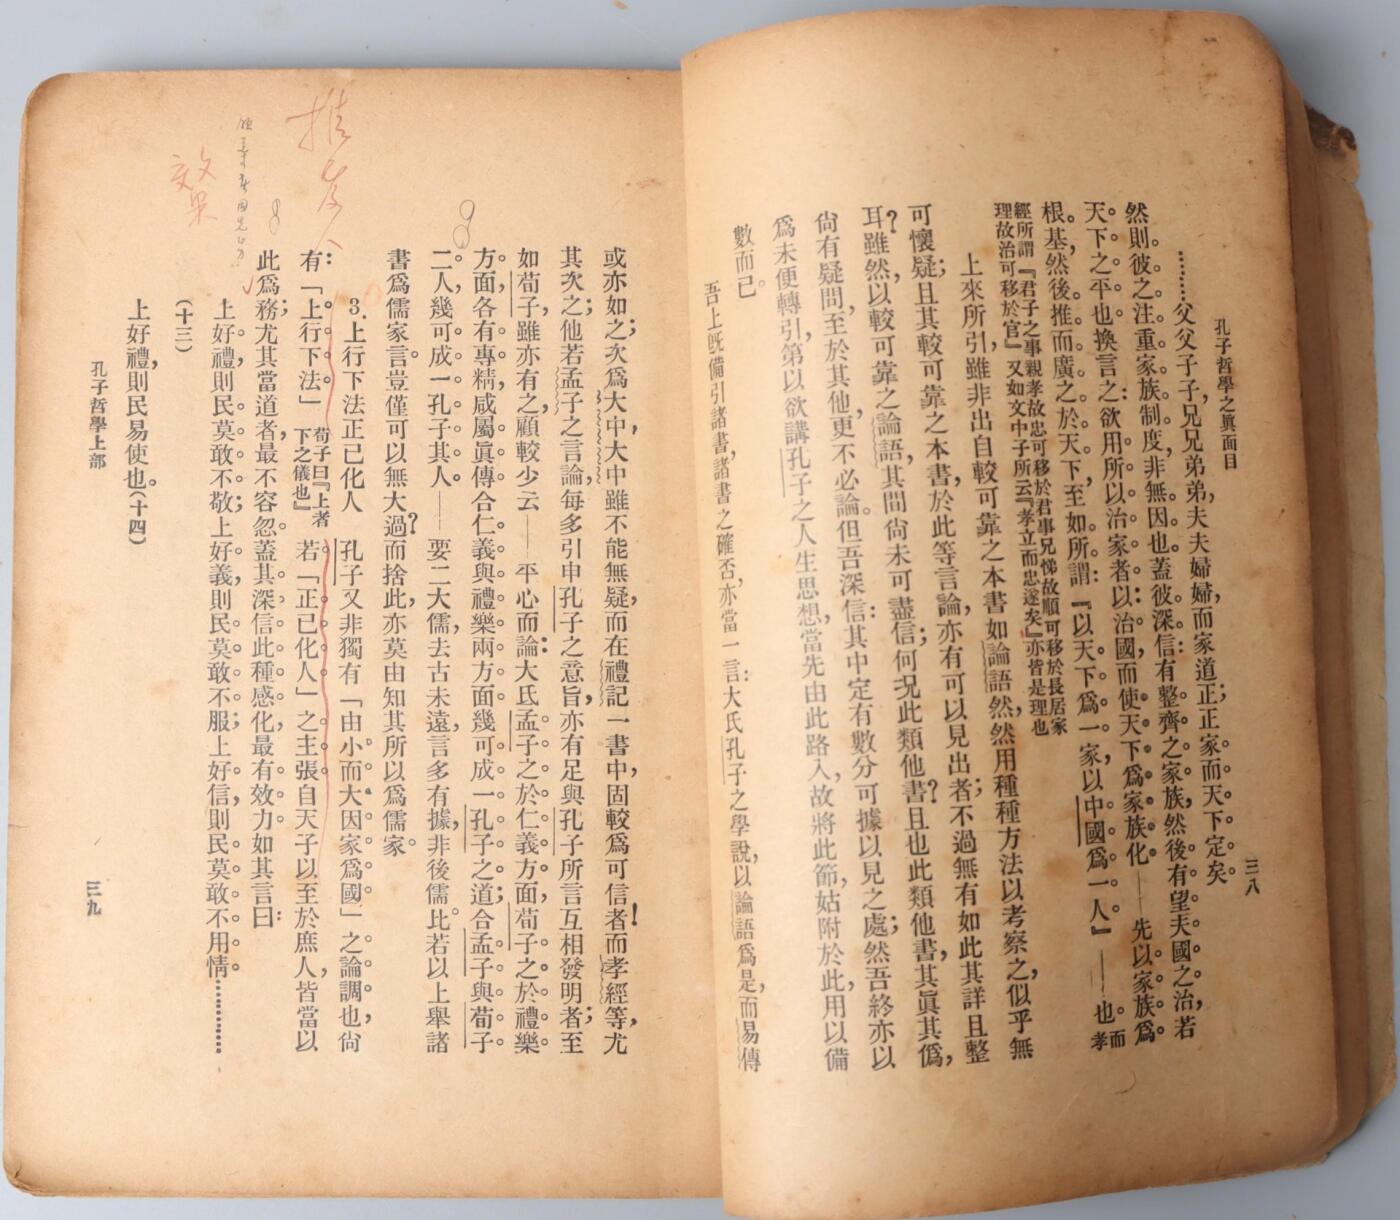 孔子哲學之眞面目
三八
………父父子子，兄兄弟弟，夫夫婦婦，而家道正；正家而天下定矣。
然則彼之注重家族制度，非無因也。蓋彼深信：有整齊之家族，然後有望天國之治，若
天下之平也。換言之：欲用所以治家者以治國，而使天下爲家族化。——先以家族爲
根基，然後推而廣之於天下，至如所謂：『以天下爲一家，以中國爲一人』——也。而孝
經所謂『君子之事親孝故忠可移於君事兄悌故順可移於長居家
理故治可移於官』又如文中子所云『孝立而忠遂矣』亦皆是理也
上來所引，雖非出自較可靠之本書，如論語，然然用種種方法以考察之，似乎無
可懷疑；且其較可靠之本書，於此等言論，亦有可以見出者；不過無有如此其詳且整
耳？雖然，以較可靠之論語，其間尙未可盡信；何況此類他書？且也此類他書，其眞其僞，
尙有疑問，至於其他，更不必論。但吾深信：其中定有數分可據以見之處；然吾終亦以
爲未便轉引，第以欲講孔子之人生思想，當先由此路入，故將此節，姑附於此，用以備
數而已。
吾上既備引諸書，諸書之確否，亦當一言：大氏孔子之學說，以論語爲是，而易傳
或亦如之；次爲大中，大中雖不能無疑，而在禮記一書中，固較爲可信者！而孝經等，尤
其次之；他若孟子之言論，每多引申孔子之意旨，亦有足與孔子所言互相發明者；至
如荀子，雖亦有之，顧較少云——平心而論：大氏孟子之於仁義方面，荀子之於禮樂
方面，各有專精，咸屬眞傳。合仁義與禮樂兩方面，幾可成一孔子之道；合孟子與荀子
二人，幾可成一孔子其人。——要二大儒，去古未遠，言多有據，非後儒比。若以上舉諸
書爲儒家言，豈僅可以無大過？而捨此，亦莫由知其所以爲儒家。
3.上行下法正己化人　孔子又非獨有「由小而大，因家爲國」之論調也，尙
有：「上行下法」荀子曰『上者下之儀也』若「正己化人」之主張。自天子以至於庶人，皆當以
此爲務；尤其當道者，最不容忽。蓋其深信此種感化，最有效力。如其言曰：
上好禮，則民莫敢不敬；上好義，則民莫敢不服；上好信，則民莫敢不用情。…………
（十三）
上好禮，則民易使也。（十四）
孔子哲學上部
三九
效果